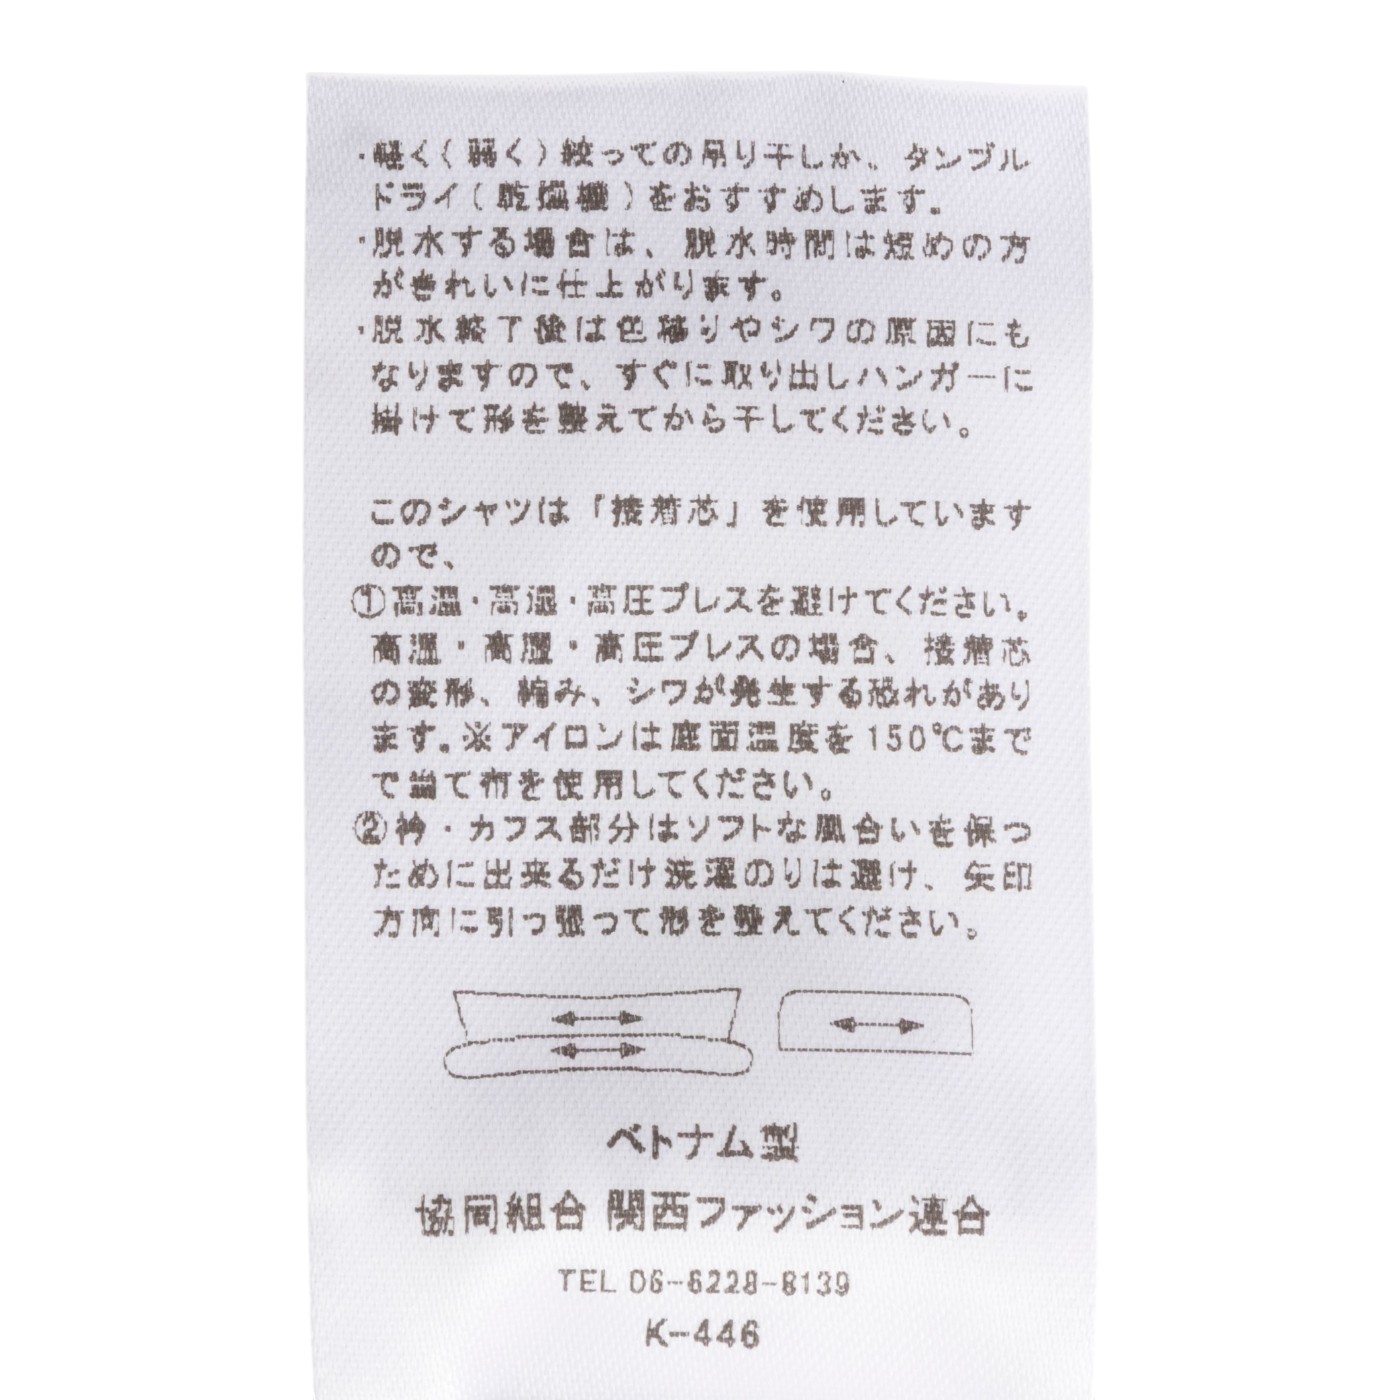 ・軽く(弱く)絞っての吊り干しか、タンブル
ドライ(乾燥機)をおすすめします。
・脱水する場合は、脱水時間は短めの方
がきれいに仕上がります。
・脱水終了後は色移りやシワの原因にも
なりますので、すぐに取り出しハンガーに
掛けて形を整えてから干してください。
このシャツは「接着芯」を使用しています
ので、
①高温・高湿・高圧プレスを避けてください。
高温・高湿・高圧プレスの場合、接着芯
の変形、縮み、シワが発生する恐れがあり
ます。※アイロンは底面温度を150℃まで
で当て布を使用してください。
②衿・カフス部分はソフトな風合いを保つ
ために出来るだけ洗濯のりは避け、矢印
方向に引っ張って形を整えてください。
ベトナム製
協同組合 関西ファッション連合
TEL 06-6228-8139
K-446